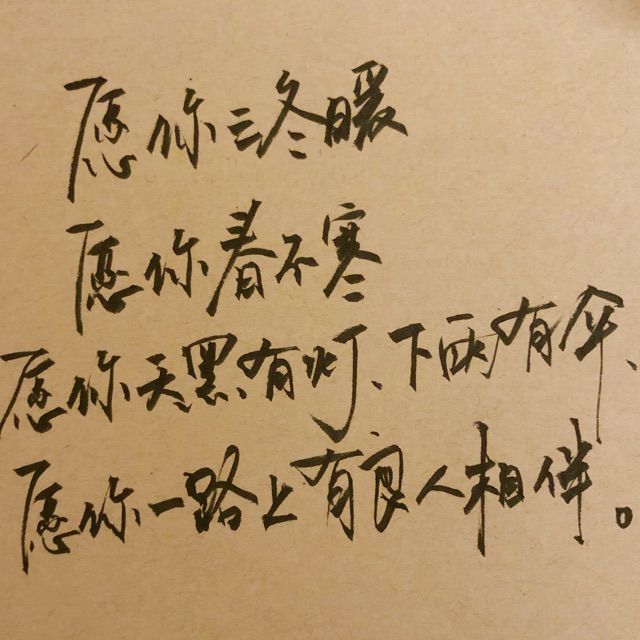 愿你三冬暖
愿你春不寒
愿你天黑有灯、下雨有伞、
愿你一路上有良人相伴。